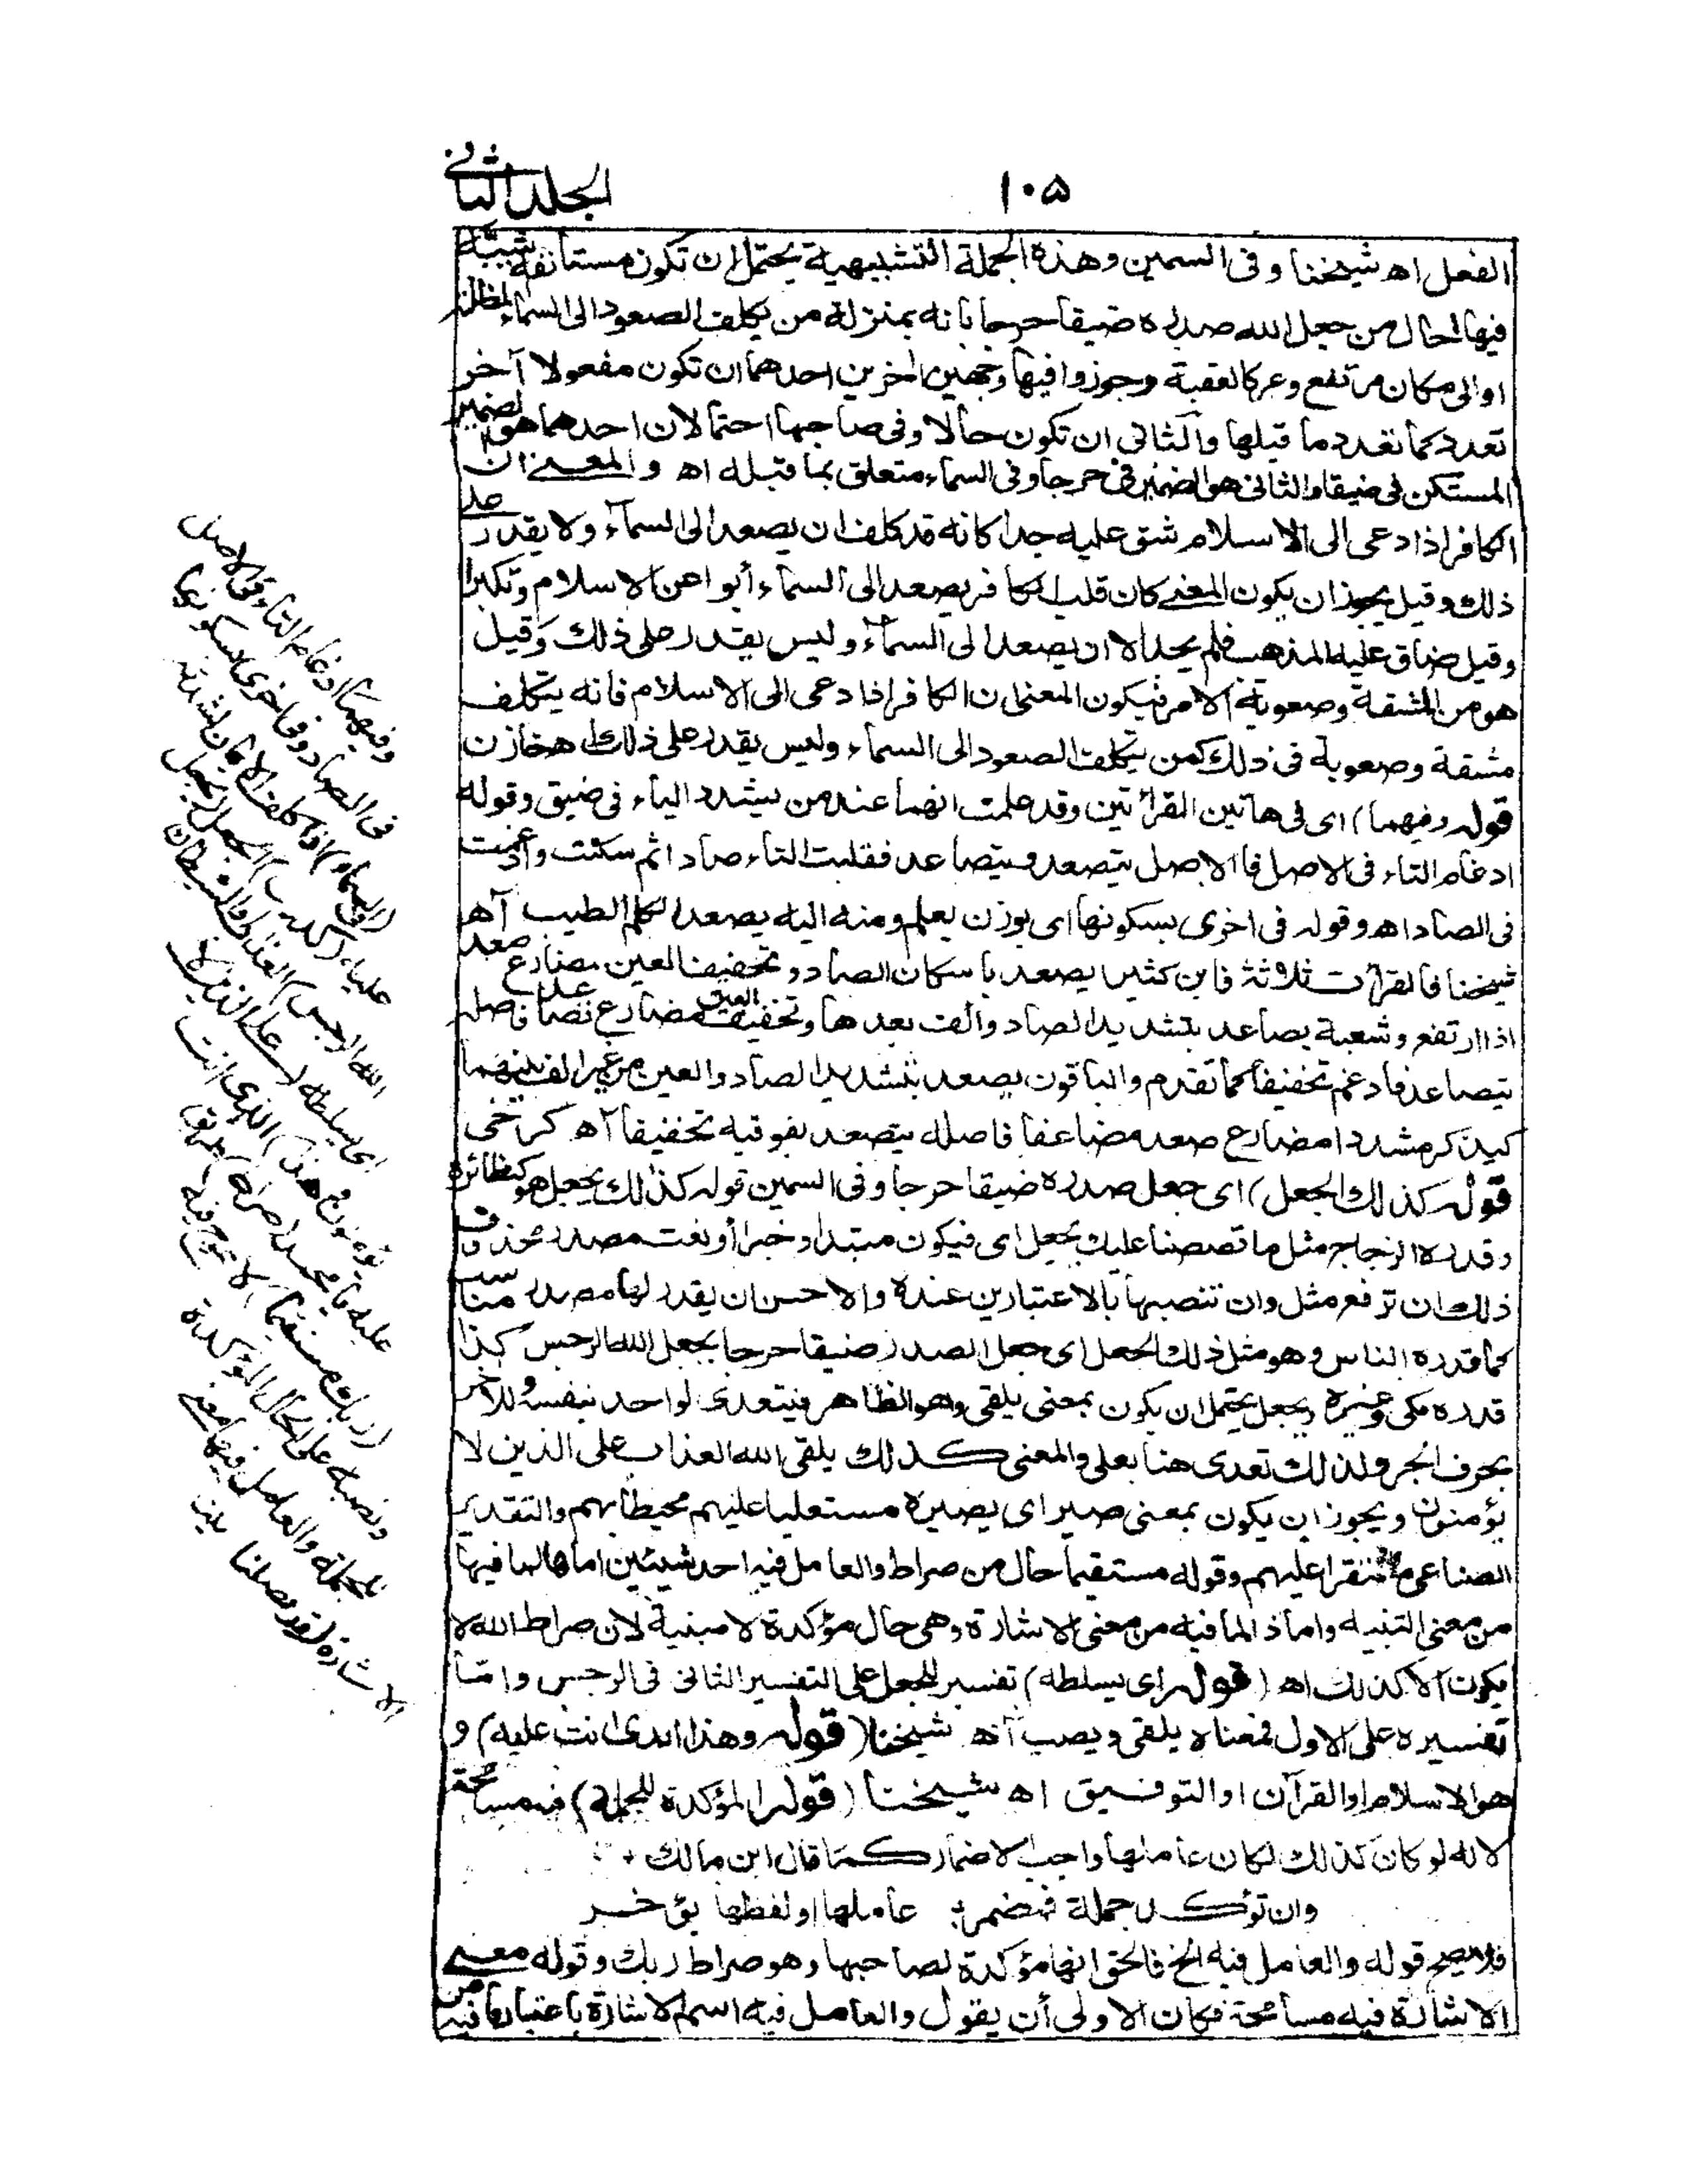 ١٠٥
الجلد الثاني
الفعل اه شيخنا وفى السمين وهذه الجملة التشبيهية يحتمل ان تكون مستانفة شبّه
فيها حال من جعل الله صدره ضيقا حرجا بانه بمنزلة من يكلف الصعود الى السماء المظلة
او الى مكان مرتفع وعر كالعقبة وجوزوا فيها وجهين اخرين احدهما ان تكون مفعولا آخر
تعدد كما تعدد ما قبلها والثانى ان تكون حالا وفى صاحبها احتمالان احدهما هو الضمير
المستكن فى ضيقا والثانى هو الضمير فى حرجا وفى السماء متعلق بما قبله اه والمعنى ان
الكافر اذا دعى الى الاسلام شق عليه جدا كانه قد كلف ان يصعد الى السمآء ولا يقدر على
ذلك وقيل يجوز ان يكون المعنى كان قلب الكافر يصعد الى السمآء أبوا عن الاسلام وتكبرا
وقيل ضاق عليه المذهب فلم يجد الا ان يصعد الى السمآء وليس يقدر على ذلك وقيل
هو من المشقة وصعوبة الامر فيكون المعنى ان الكافر اذا دعى الى الاسلام فانه يتكلف
مشقة وصعوبة فى ذلك كمن يتكلف الصعود الى السماء وليس يقدر على ذلك اه خازن
قوله وفيهما) اى فى هاتين القرائتين وقد علمت انهما عند من يشدد الياء فى ضيق وقوله
ادغام التاء فى الاصل فا الاصل يتصعد ويتصاعد فقلبت التاء صادا ثم سكنت وأدغمت
فى الصاد اه وقوله فى اخرى بسكونها اى بوزن يعلم ومنه اليه يصعد الكلم الطيب آه
شيخنا فالقراآت ثلاثة فابن كثير يصعد باسكان الصاد وتخفيف العين مضارع صعد
اذا ارتفع وشعبة يصاعد بتشديد الصاد والف بعدها وتخفيف العين مضارع تصاعد اصله
يتصاعد فادغم تخفيفا كما تقدم والباقون يصعد بتشديد الصاد والعين من غير الف بينهما
كيذكر مشددا مضارع صعد مضاعفا فاصله يتصعد بفوقيه تخفيفا آه كرخى
قوله كذلك الجعل) اى جعل صدره ضيقا حرجا وفى السمين قوله كذلك يجعل هو كنظائره
وقدره الزجاج مثل ما قصصنا عليك يجعل اى فيكون مبتدا وخبرا أو نعت مصدر محذوف
ذلك ان ترفع مثل وان تنصبها بالاعتبارين عنده والاحسن ان يقدر لها مصدر مناسب
كما قدره الناس وهو مثل ذلك الجعل اى جعل الصدر ضيقا حرجا يجعل الله الرجس كذا
قدره مكى وغيره ويجعل يحتمل ان يكون بمعنى يلقى وهو الظاهر فيتعدى لواحد بنفسه وللآخر
بحرف الجر ولذلك تعدى هنا بعلى والمعنى كذلك يلقى الله العذاب على الذين لا
يؤمنون ويجوز ان يكون بمعنى صير اى يصيره مستعليا عليهم محيطا بهم والتقدير
الصناعى مستقرا عليهم وقوله مستقيما حال من صراط والعامل فيه احد شيئين اما ها لما فيها
من معنى التنبيه واما ذا لما فيه من معنى الاشارة وهى حال مؤكدة لا مبنية لان صراط الله لا
يكون الا كذلك اه (قوله اى يسلطه) تفسير للجعل على التفسير الثانى فى الرجس وامّا
تفسيره على الاول فمعناه يلقى ويصب آه شيخنا (قوله وهذا الذى انت عليه) و
هو الاسلام او القرآن او التوفيق اه شيخنا (قوله المؤكدة للجملة) فيه مسامحة
لانه لو كان كذلك لكان عاملها واجب الاضمار كما قال ابن مالك
وان تؤكد جملة فمضمر عاملها ولفظها يؤخر
فلا يصح قوله والعامل فيه الخ فالحق انها مؤكدة لصاحبها وهو صراط ربك وقوله معنى
الاشارة فيه مسامحة فكان الاولى أن يقول والعامل فيه اسم الاشارة باعتبار ما فيه من
وفيهما) ادغام التاء فى الاصل
فى الصاد وفى اخرى بسكونها
(فى السماء) اذا كلف الايمان لشدته
عليه (كذلك) الجعل (يجعل
الله الرجس) العذاب او الشيطان
اى يسلطه (على الذين لا
يؤمنون وهذا) الذى انت
عليه يا محمد (صراط) طريق
(ربك مستقيما) لا عوج فيه
ونصبه على الحال المؤكدة
للجملة والعامل فيها معنى
الاشارة (قد فصلنا) بينا